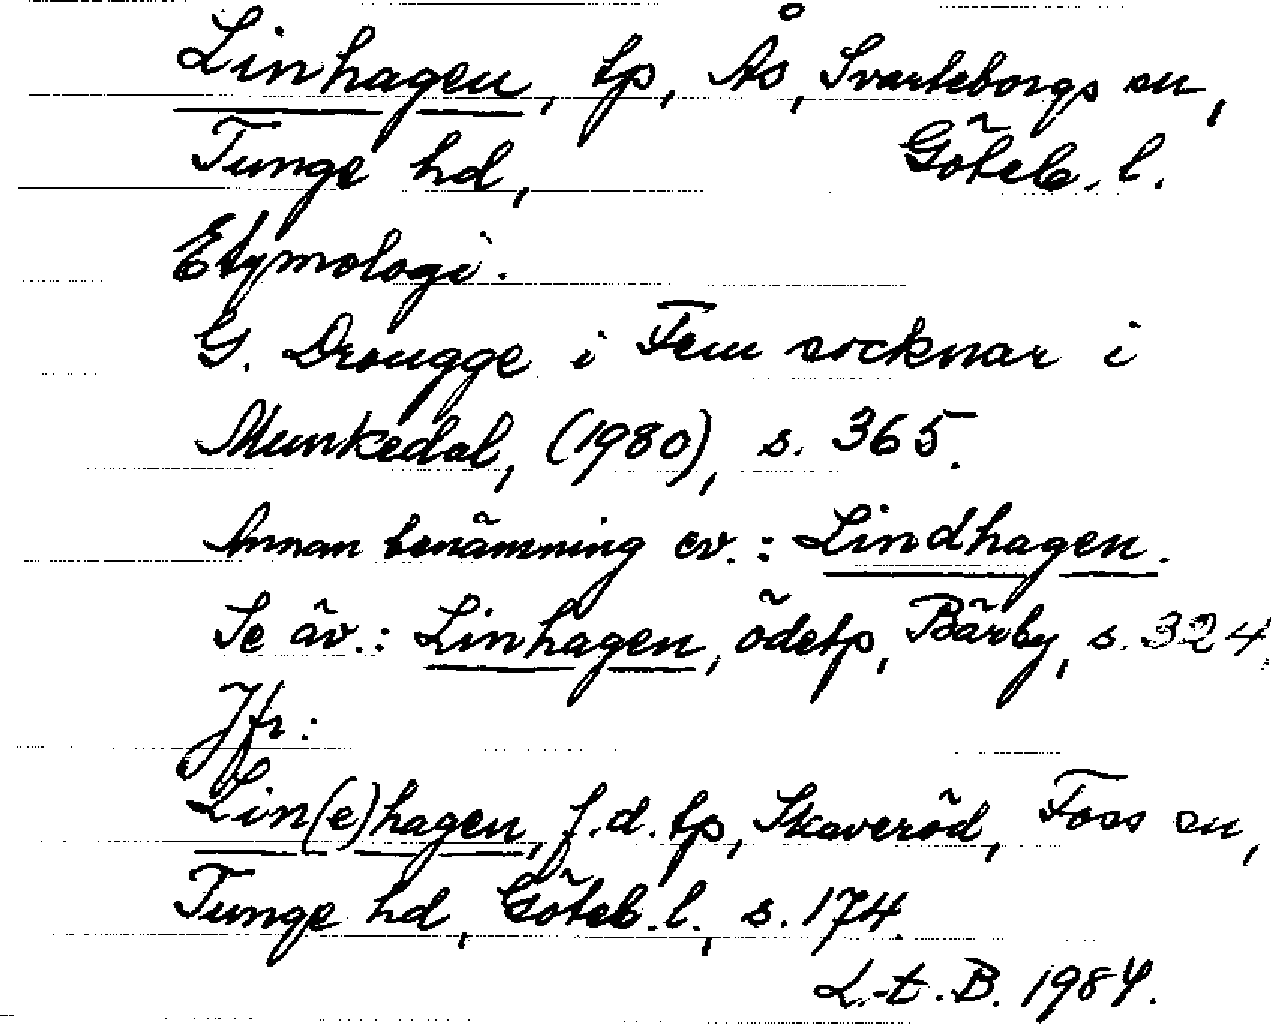 Linhagen, tp, Ås, Svarteborgs sn,
Tunge hd, Göteb. l.
Etymologi.
G. Drougge i Fem socknar i
Munkedal, (1980), s. 365.
Annan benämning ev.: Lindhagen.
Se äv.: Linhagen, ödetp, Bärby, s. 324.
Jfr:
Lin(e)hagen, f.d. tp, Skaveröd, Foss sn,
Tunge hd, Göteb. l., s. 174.
L-t. B. 1984.